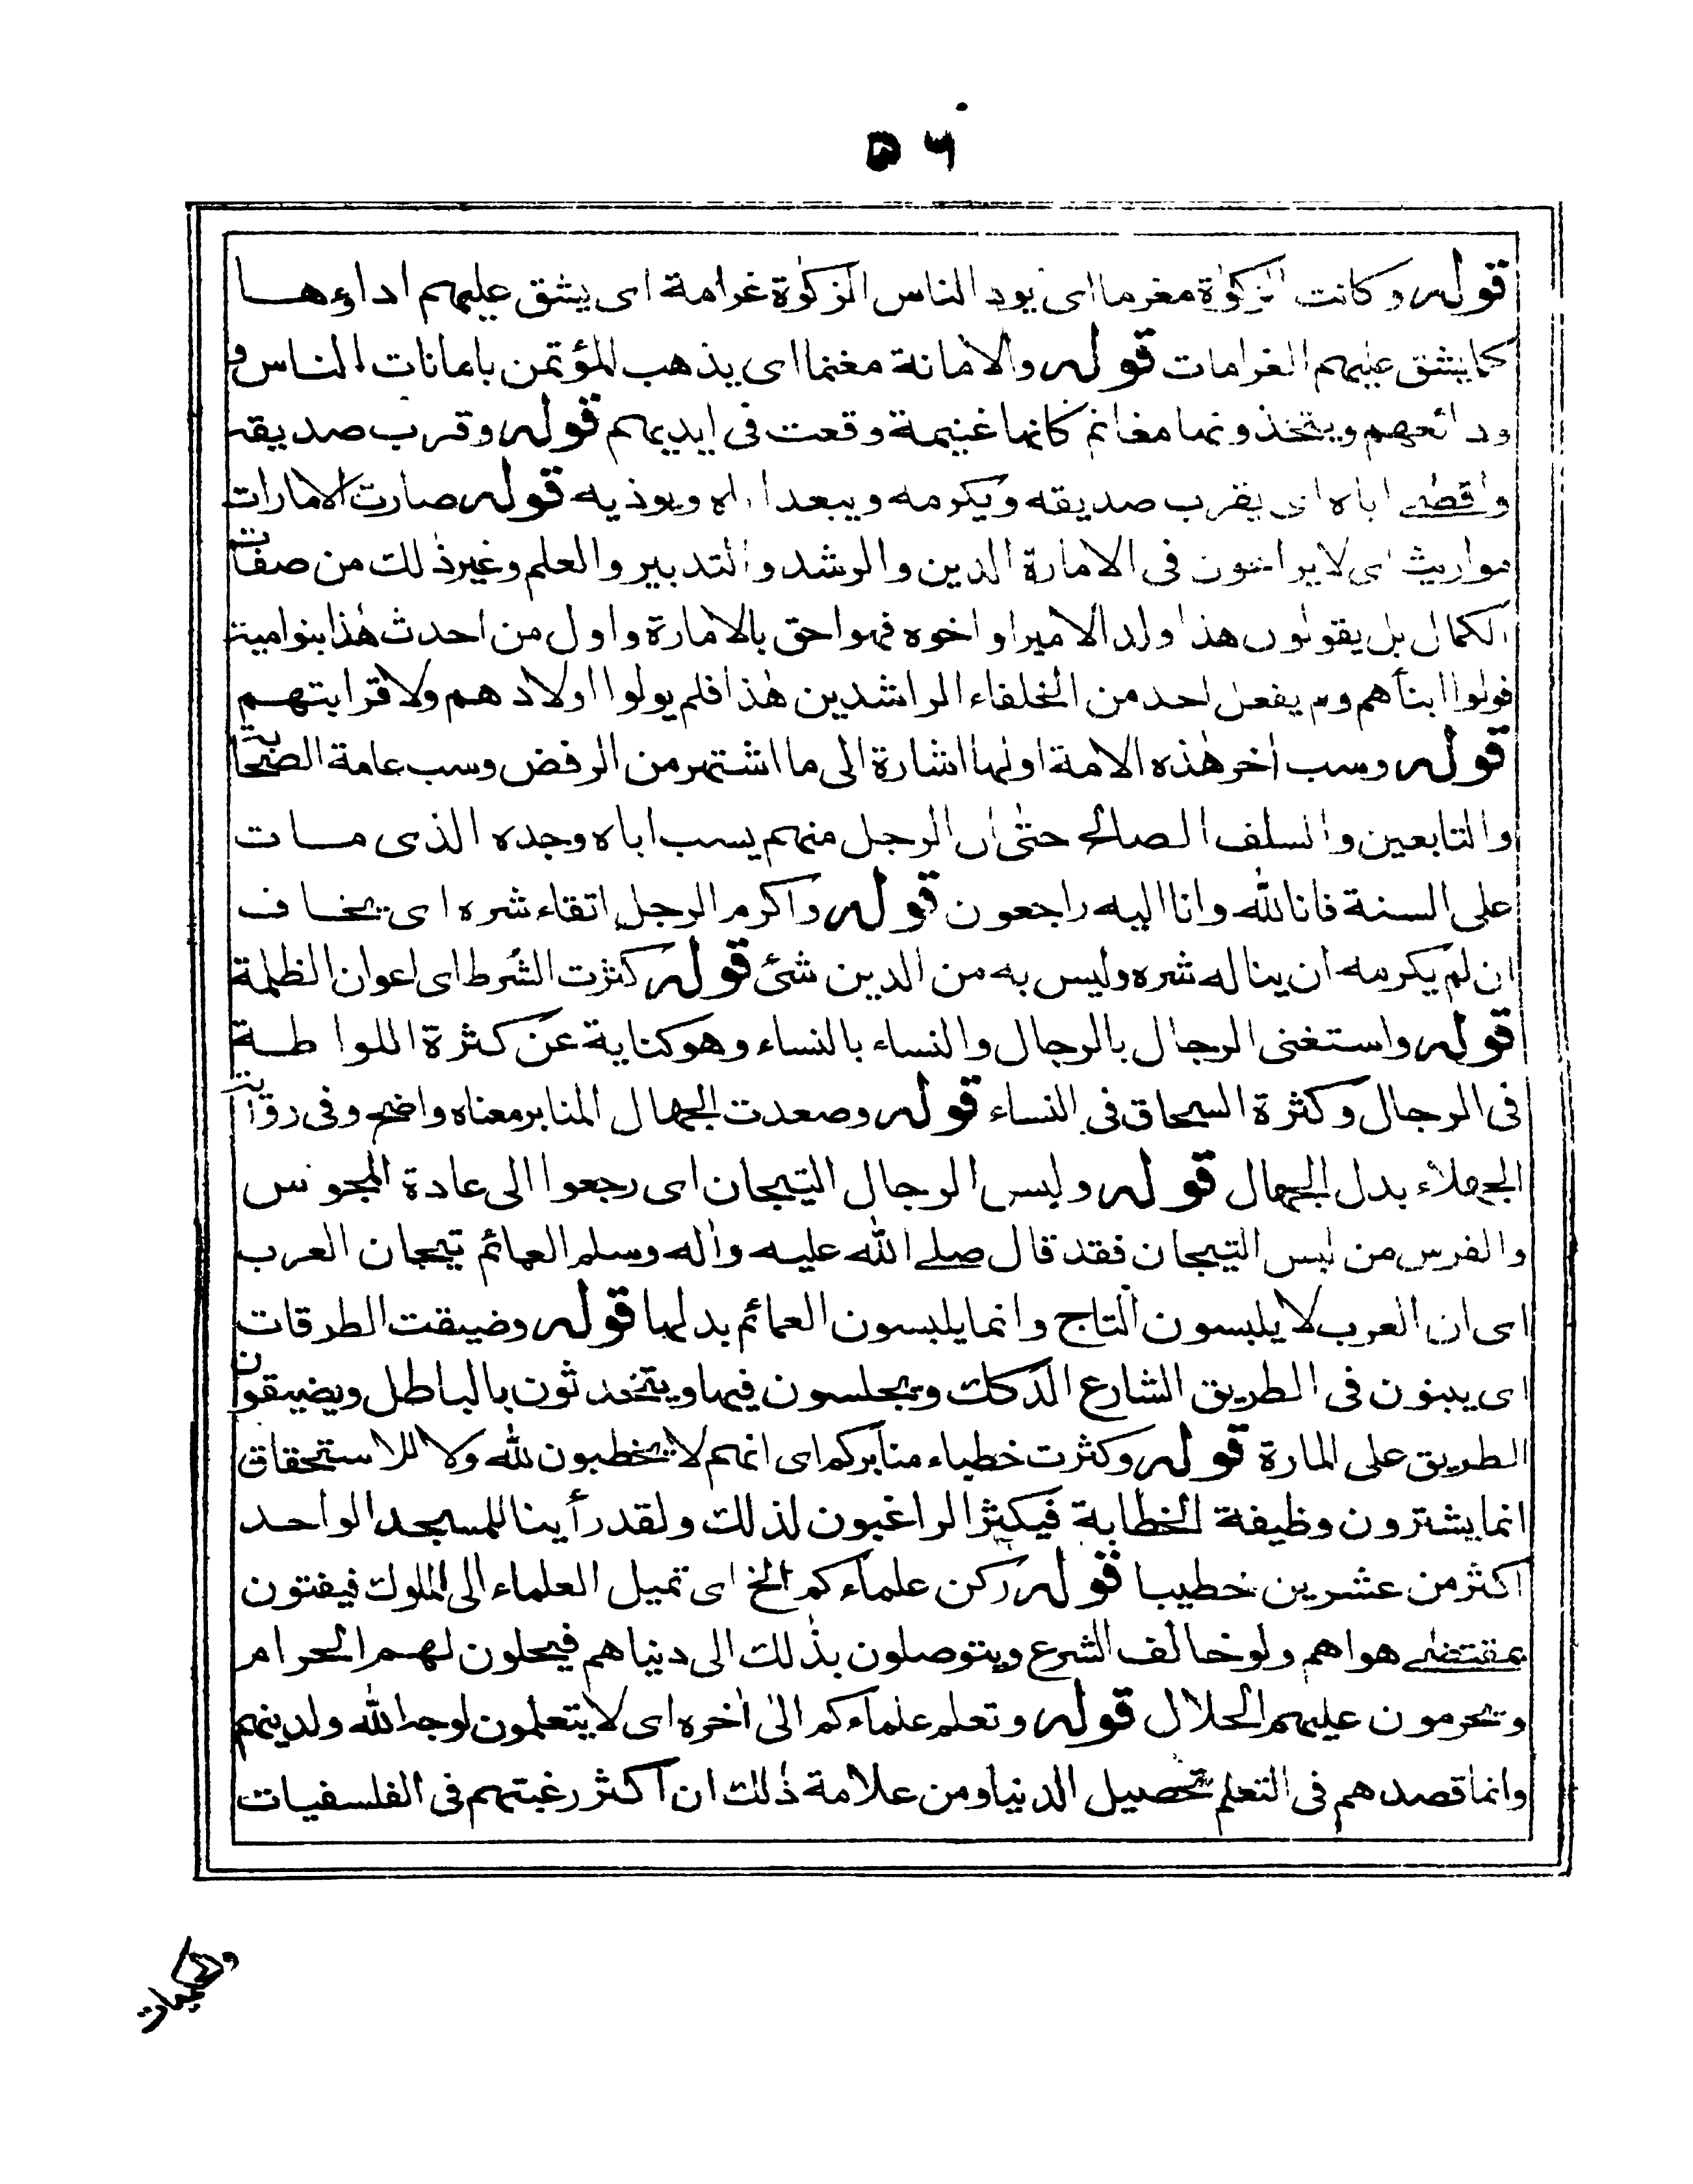 ٥٦
قوله وكانت الزكوٰة مغرما اى يود الناس الزكوٰة غرامة اى يشق عليهم اداؤها
كما يشق عليهم الغرامات قوله والامانة مغنما اى يذهب المؤتمن بامانات الناس و
ودائعهم ويتخذونها مغانم كانها غنيمة وقعت فى ايديهم قوله وقرب صديقه
واقصٰے اباه اى يقرب صديقه ويكرمه ويبعد اباه ويوذيه قوله صارت الامارات
مواريث اى لا يراعون فى الامارة الدين والرشد والتدبير والعلم وغير ذٰلك من صفات
الكمال بل يقولون هذا ولد الامير او اخوه فهو احق بالامارة واول من احدث هٰذا بنوامية
فولوا ابنأهم ولم يفعل احد من الخلفاء الراشدين هٰذا فلم يولوا اولادهم ولا قرابتهم
قوله وسب اٰخر هٰذه الامة اولها اشارة الى ما اشتهر من الرفض وسب عامة الصحابة
والتابعين والسلف الصالح حتٰى ان الرجل منهم يسب اباه وجده الذى مات
على السنة فانا لله وانا اليه راجعون قوله واكرم الرجل اتقاء شره اى يخاف
ان لم يكرمه ان يناله شره وليس به من الدين شئ قوله كثرت الشرط اى اعوان الظلمة
قوله واستغنى الرجال بالرجال والنساء بالنساء وهو كناية عن كثرة اللواطة
فى الرجال وكثرة السحاق فى النساء قوله وصعدت الجهال المنابر معناه واضح وفى رواية
الجهلاء بدل الجهال قوله ولبس الرجال التيجان اى رجعوا الى عادة المجوس
والفرس من لبس التيجان فقد قال صلے الله عليه واٰله وسلم العمائم تيجان العرب
اى ان العرب لا يلبسون التاج وانما يلبسون العمائم بدلها قوله وضيقت الطرقات
اى يبنون فى الطريق الشارع الدكك ويجلسون فيها ويتحدثون بالباطل ويضيقون
الطريق على المارة قوله وكثرت خطباء منابركم اى انهم لا يخطبون لله ولا للاستحقاق
انما يشترون وظيفة الخطابة فيكثر الراغبون لذلك ولقد رأينا للمسجد الواحد
اكثر من عشرين خطيبا قوله ركن علماءكم الخ اى تميل العلماء الى الملوك فيفتون
بمقتضٰے هواهم ولو خالف الشرع ويتوصلون بذٰلك الى دنياهم فيحلون لهم الحرام
ويحرمون عليهم الحلال قوله وتعلم علماءكم الىٰ اٰخره اى لا يتعلمون لوجه الله ولدينهم
وانما قصدهم فى التعلم تحصيل الدنيا ومن علامة ذٰلك ان اكثر رغبتهم فى الفلسفيات